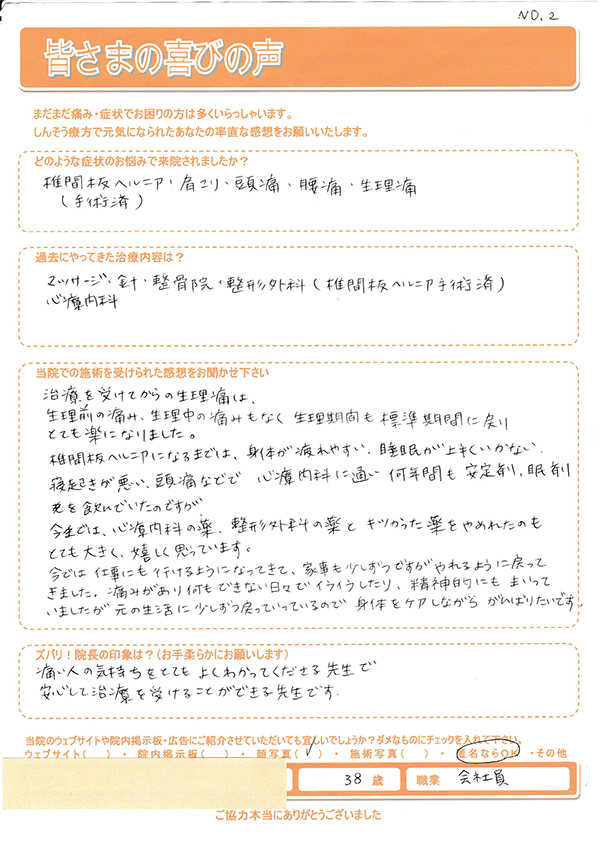 NO.2
皆さまの喜びの声
まだまだ痛み・症状でお困りの方は多くいらっしゃいます。
しんそう療方で元気になられたあなたの率直な感想をお願いいたします。
どのような症状のお悩みで来院されましたか?
椎間板ヘルニア・肩こり・頭痛・腰痛・生理痛
(手術済)
過去にやってきた治療内容は?
マッサージ・針・整骨院・整形外科(椎間板ヘルニア手術済)
心療内科
当院での施術を受けられた感想をお聞かせ下さい
治療を受けてからの生理痛は、
生理前の痛み、生理中の痛みもなく生理期間も標準期間に戻り
とても楽になりました。
椎間板ヘルニアになるまでは、身体が疲れやすい、睡眠が上手くいかない、
寝起きが悪い、頭痛などで 心療内科に通い 何年間も 安定剤、眠剤
を飲んでいたのですが
今では、心療内科の薬、整形外科の薬と キツかった薬をやめれたのも
とても大きく、嬉しく思っています。
今では仕事にも行けるようになってきて、家事も少しずつですがやれるように戻って
きました。痛みがあり何もできない日々でイライラしたり、精神的にもまいって
いましたが元の生活に少しずつ戻っていっているので 身体をケアしながら がんばりたいです。
ズバリ!院長の印象は?(お手柔らかにお願いします)
痛い人の気持ちをとてもよくわかってくださる先生で
安心して治療を受けることができる先生です。
当院のウェブサイトや院内掲示板・広告にご紹介させていただいても宜しいでしょうか?ダメなものにチェックを入れて下さい。
ウェブサイト( )・院内掲示板( )・顔写真(✓)・施術写真( )・匿名ならOK・その他
38 歳 職業 会社員
ご協力本当にありがとうございました